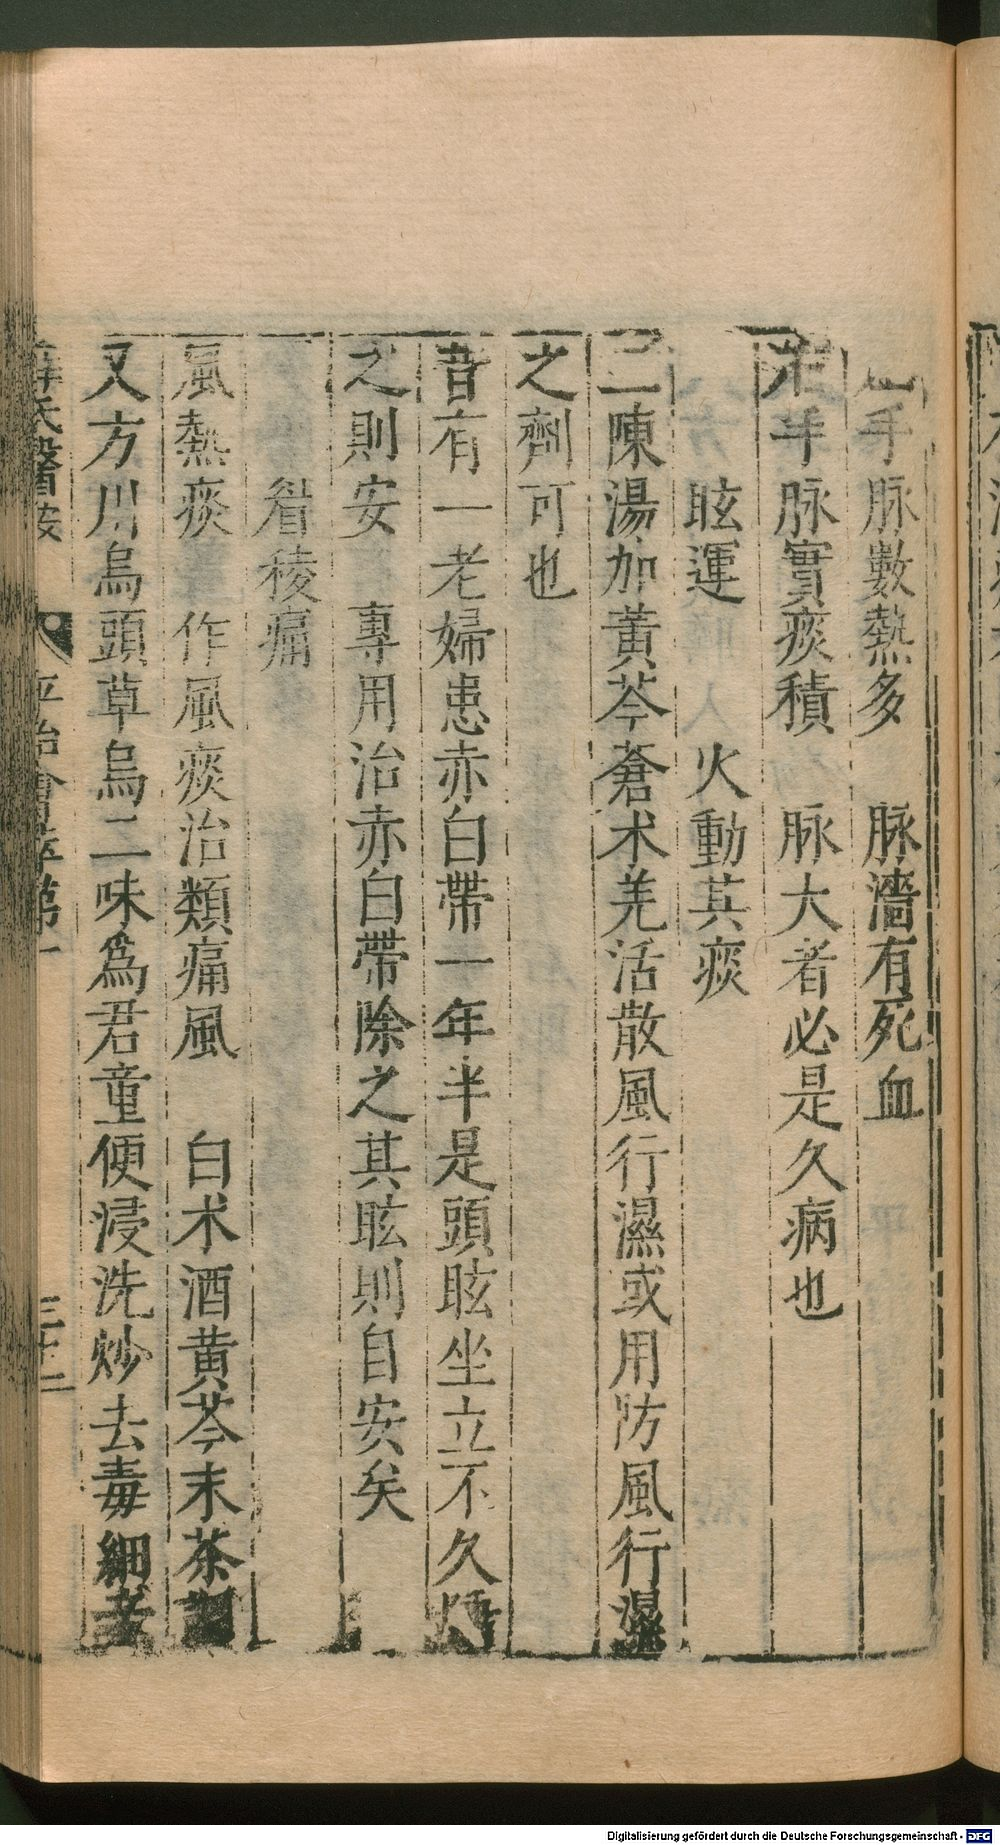 手脉數熱多　脉濇有死血
右手脉實痰積　脉大者必是久病也
眩運　火動其痰
二陳湯加黄芩蒼术羌活散風行濕或用防風行濕
之劑可也
昔有一老婦患赤白帶一年半是頭眩坐立不久
之則安　專用治赤白帶除之其眩則自安矣
眉稜痛
風熱痰　作風痰治類痛風　白术酒黄芩末茶
又方川烏頭草烏二味為君童便浸洗炒去毒細
薛氏醫按　平治會萃第一　三十二
Digitalisierung gefördert durch die Deutsche Forschungsgemeinschaft - DFG